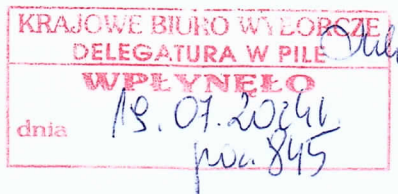 KRAJOWE BIURO WYBORCZE
DELEGATURA W PILE
WPŁYNĘŁO
dnia 19.07.2024r.
poz. 845